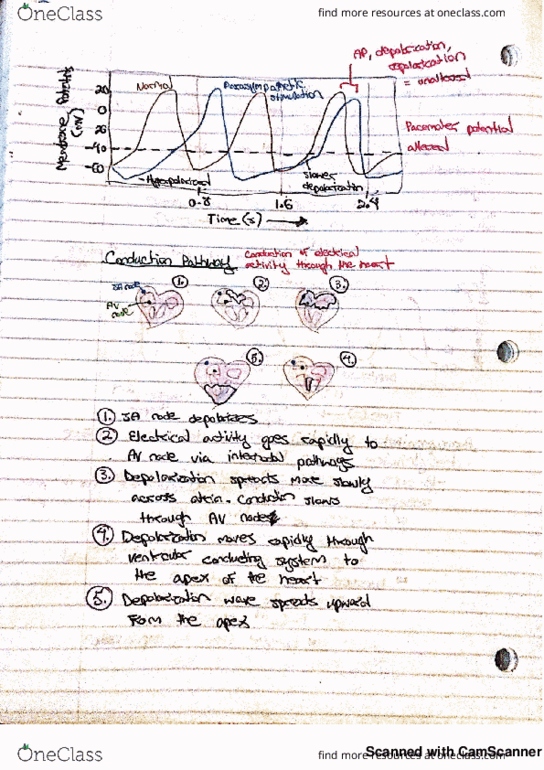 OneClass
find more resources at oneclass.com
AP, depolarization,
repolarization
= unaltered
Membrane Potential
(mV)
20
0
20
-40
-60
Normal
Parasympathetic
stimulation
Pacemaker potential
affected
Hyperpolarized
slower
depolarization
0.8
1.6
2.4
Time (s)
Conduction Pathway
Conduction of electrical
activity through the heart
SA node
AV
node
1.
2.
3.
5.
4.
1. SA node depolarizes
2. Electrical activity goes rapidly to
AV node via internodal pathways
3. Depolarization spreads more slowly
across atria. Conduction slows
through AV node
4. Depolarization moves rapidly through
ventricular conducting system to
the apex of the heart
5. Depolarization wave spreads upward
from the apex
OneClass
find more resources at oneclass.com
Scanned with CamScanner